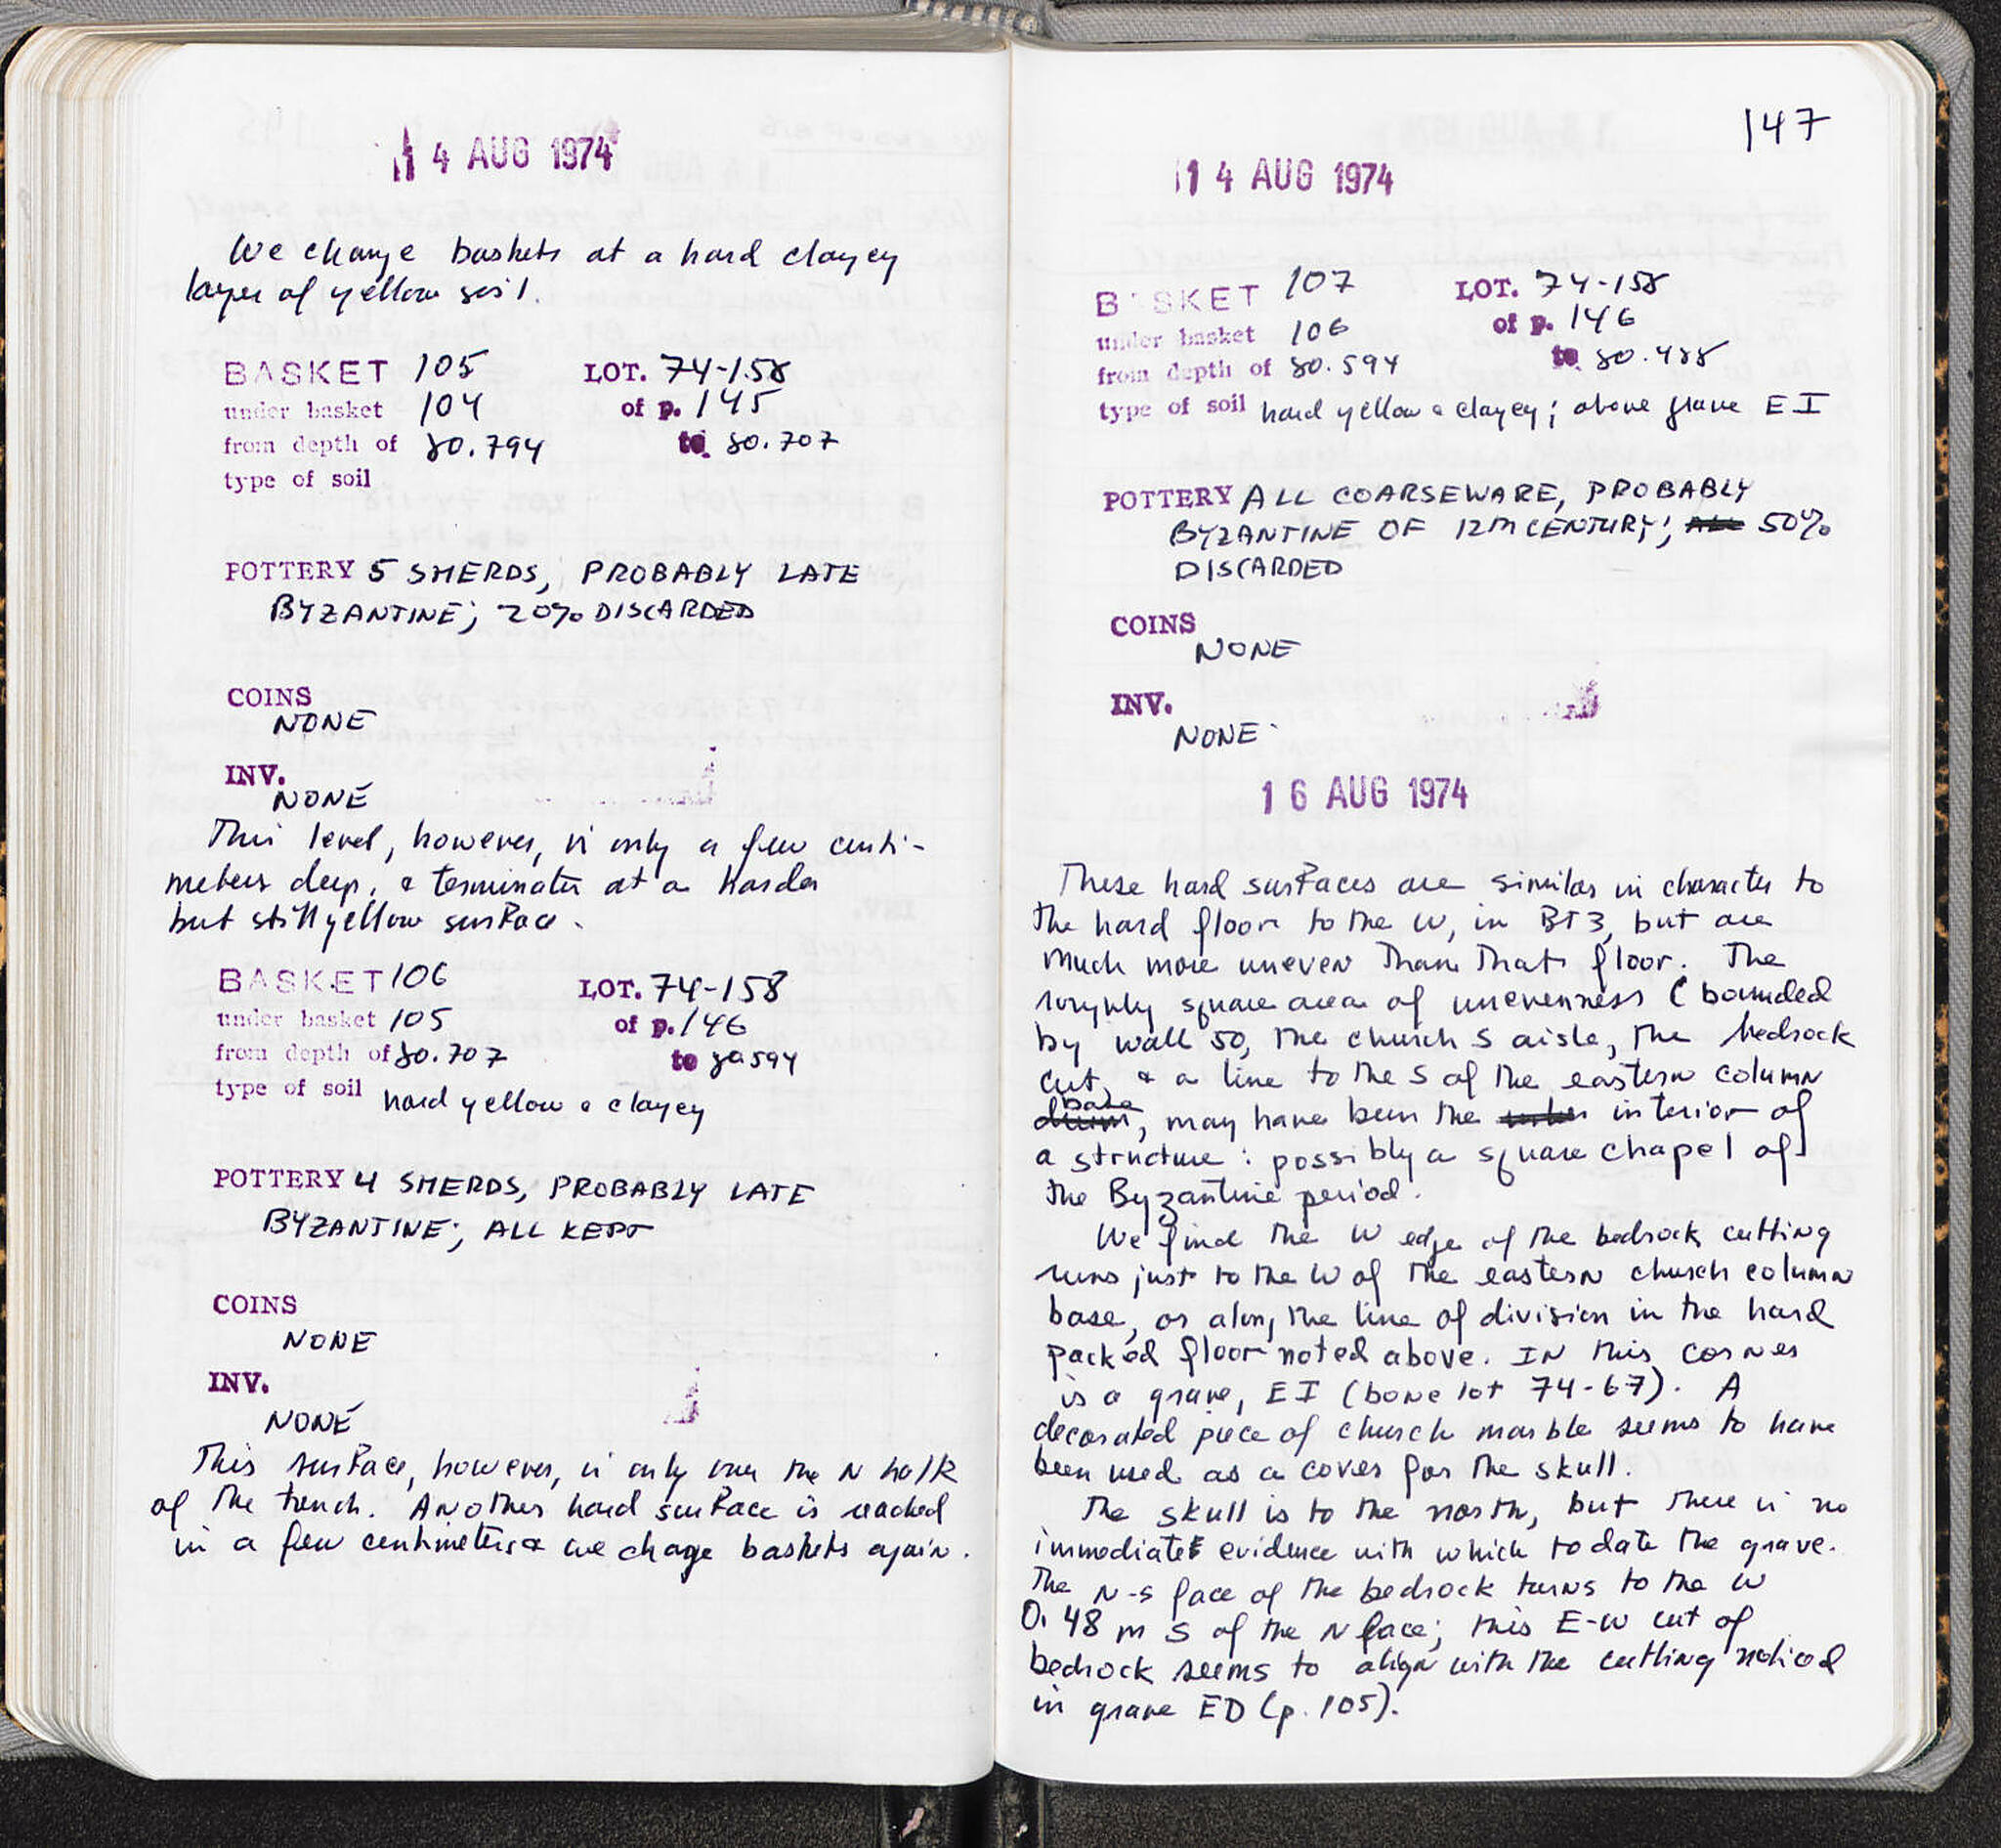 14 AUG 1974
We change baskets at a hard clayey
layer of yellow soil.
BASKET 105 LOT. 74-158
under basket 104 of p. 145
from depth of 80.794 to 80.707
type of soil
POTTERY 5 SHERDS, PROBABLY LATE
BYZANTINE; 20% DISCARDED
COINS
NONE
INV.
NONE
This level, however, is only a few centi-
meters deep, & terminates at a harder
but still yellow surface.
BASKET 106 LOT. 74-158
under basket 105 of p. 146
from depth of 80.707 to 80.594
type of soil hard yellow & clayey
POTTERY 4 SHERDS, PROBABLY LATE
BYZANTINE; ALL KEPT
COINS
NONE
INV.
NONE
This surface, however, is only over the N half
of the trench. Another hard surface is reached
in a few centimeters & we chage baskets again.
147
14 AUG 1974
BASKET 107 LOT. 74-158
under basket 106 of p. 146
from depth of 80.594 to 80.488
type of soil hard yellow & clayey; above grave EI
POTTERY ALL COARSEWARE, PROBABLY
BYZANTINE OF 12TH CENTURY; 50%
DISCARDED
COINS
NONE
INV.
NONE
16 AUG 1974
These hard surfaces are similar in character to
the hard floor to the W, in BT3, but are
much more uneven than that floor. The
roughly square area of unevenness (bounded
by wall 50, the church S aisle, the bedrock
cut, & a line to the S of the eastern column
base, may have been the interior of
a structure: possibly a square chapel of
the Byzantine period.
We find the W edge of the bedrock cutting
runs just to the W of the eastern church column
base, or along the line of division in the hard
packed floor noted above. In this corner
is a grave, EI (bone lot 74-67). A
decorated piece of church marble seems to have
been used as a cover for the skull.
The skull is to the north, but there is no
immediate evidence with which to date the grave.
The N-S face of the bedrock turns to the W
0.48 m S of the N face; this E-W cut of
bedrock seems to align with the cutting noticed
in grave ED (p. 105).